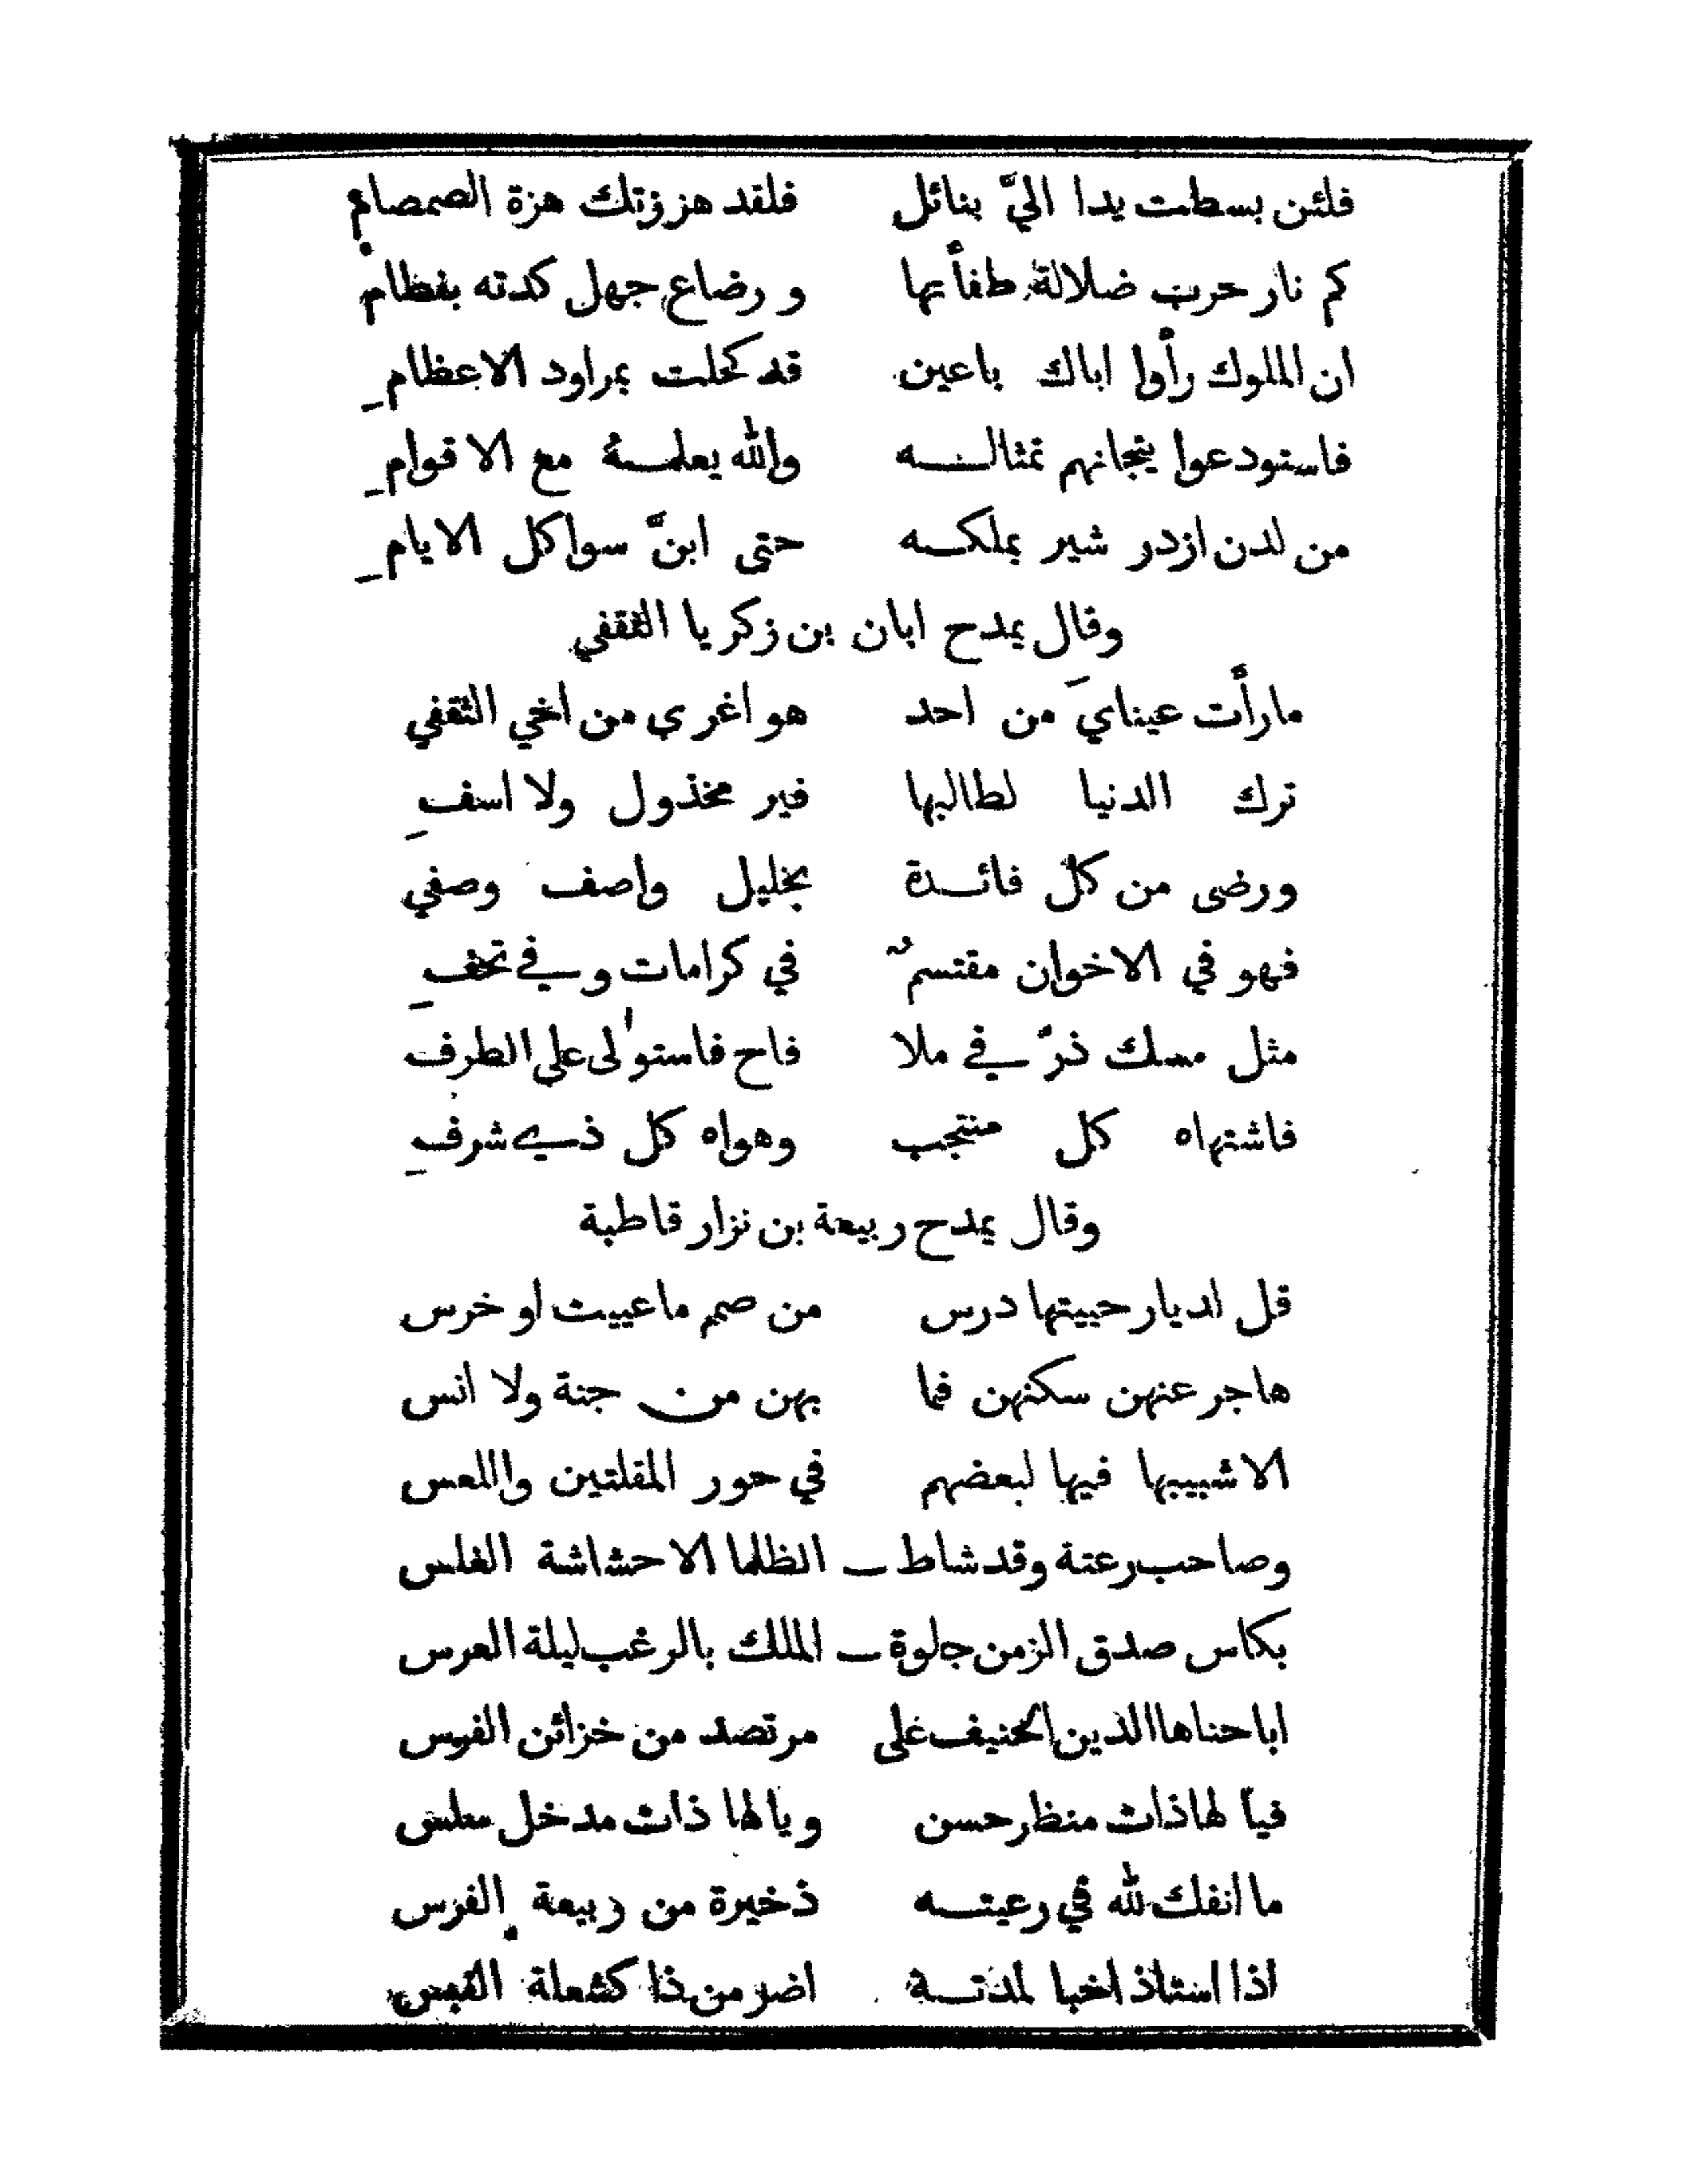 فلئن بسطت يدا اليَّ بنائل فلقد هززتك هزة الصمصام
كم نار حرب ضلالة طفأتها و رضاع جهل كدته بفظام
ان الملوك رأوا اباك باعين قد كحلت بمراود الاعظامِ
فاستودعوا يتجانهم تمثالــه والله يعلمــهُ مع الاقوامِ
من لدن ازدر شير بملكــه حتى ابنَّ سواكل الايامِ
وقال يمدح ابان بن زكريا الثقفي
مارأت عينايَ من احد هو اغرى من اخي الثقفي
ترك الدنيا لطالبها غير مخذول ولا اسفِ
ورضى من كل فائــدة بخليل واصف وصفي
فهو في الاخوان مقتسمٌ في كرامات وفي تحفِ
مثل مسك ذرَّ في ملا فاح فاستولى على الطرف
فاشتهاه كل منتجب وهواه كل ذي شرفِ
وقال يمدح ربيعة بن نزار قاطبة
قل لديار حييتها درس من صمم ماعييت او خرس
هاجر عنهن سكنهن فما بهن من جنة ولا انس
الا شبيبها فيها لبعضهم في حور المقلتين واللعس
وصاحب رعتة وقد شاط ـ الظلما الا حشاشة الغلس
بكاس صدق الزمن جلوة ـ الملك بالرغب ليلة العرس
اباحناها الدين الحنيف على مرتصد من خزائن الفرس
فيا لها ذات منظر حسن ويالها ذات مدخل سلس
ما انفك لله في رعيتــه ذخيرة من ربيعة الفرس
اذا لمدتــه اضر من ذا كشعلة القبس